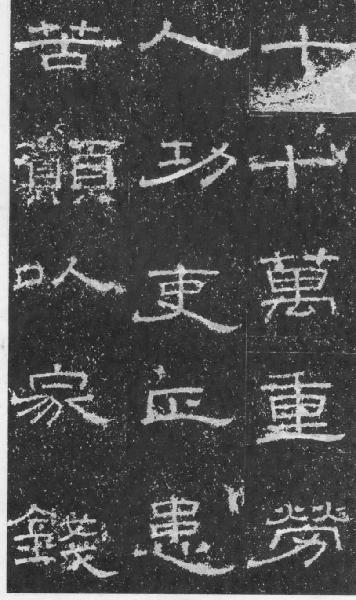 七十萬重勞
人功吏正患
苦願以家錢